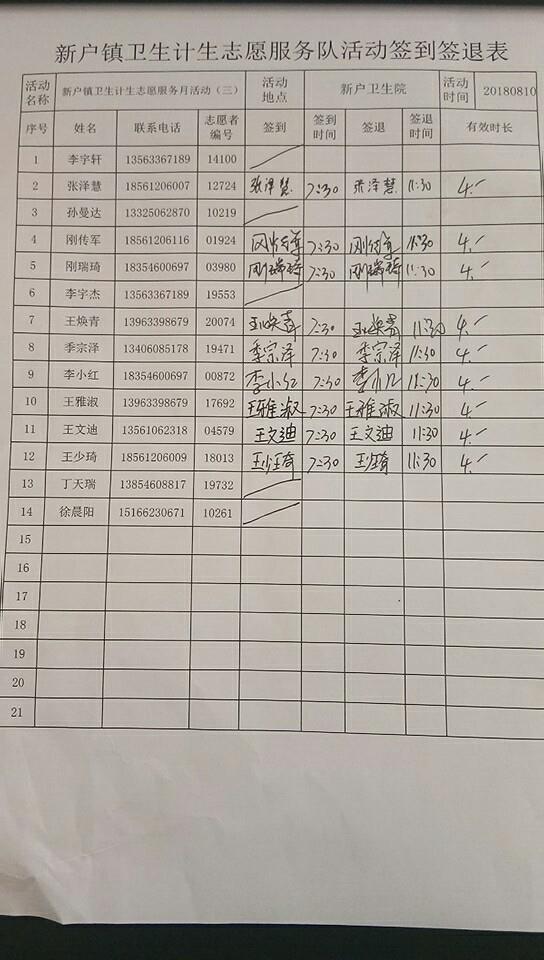 新户镇卫生计生志愿服务队活动签到签退表
活动名称 新户镇卫生计生志愿服务月活动（三） 活动地点 新户卫生院 活动时间 20180810
序号 姓名 联系电话 志愿者编号 签到 签到时间 签退 签退时间 有效时长
1 李宇轩 13563367189 14100
2 张泽慧 18561206007 12724 张泽慧 7:30 张泽慧 11:30 4.
3 孙曼达 13325062870 10219
4 刚传军 18561206116 01924 刚传军 7:30 刚传军 11:30 4.
5 刚瑞琦 18354600697 03980 刚瑞琦 7:30 刚瑞琦 11:30 4.
6 李宇杰 13563367189 19553
7 王焕青 13963398679 20074 王焕青 7:30 王焕青 11:30 4.
8 季宗泽 13406085178 19471 季宗泽 7:30 季宗泽 11:30 4.
9 李小红 18354600697 00872 李小红 7:30 李小红 11:30 4.
10 王雅淑 13963398679 17692 王雅淑 7:30 王雅淑 11:30 4.
11 王文迪 13561062318 04579 王文迪 7:30 王文迪 11:30 4.
12 王少琦 18561206009 18013 王少琦 7:30 王少琦 11:30 4.
13 丁天瑞 13854608817 19732
14 徐晨阳 15166230671 10261
15
16
17
18
19
20
21